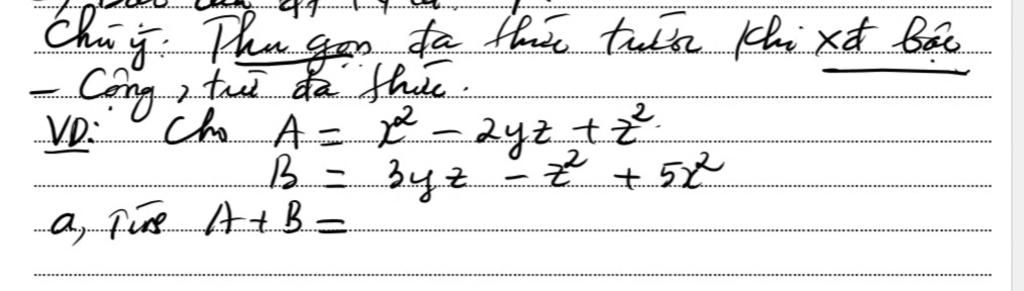 Chú ý: Thu gọn đa thức trước khi xđ bậc
- Cộng, trừ đa thức.
VD: Cho A = x² - 2yz + z².
B = 3yz - z² + 5x²
a, Tính A + B =